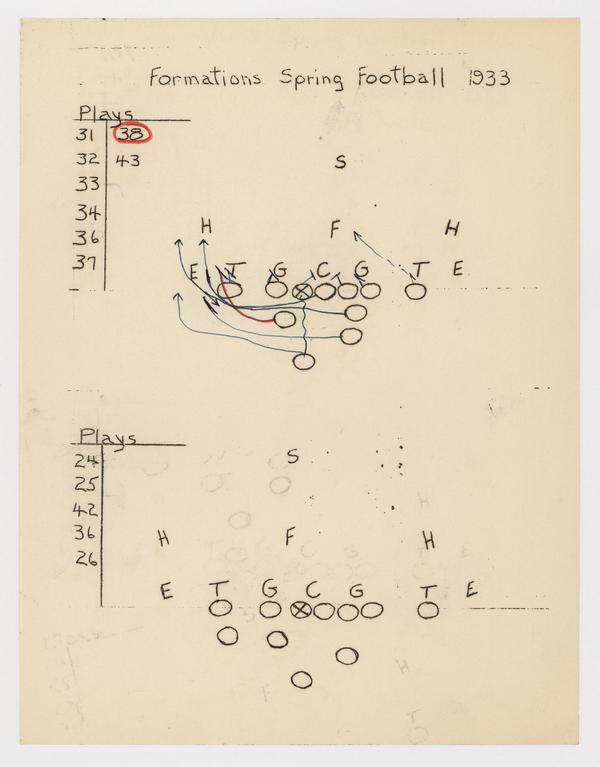 Formations Spring Football 1933
Plays
31 38
32 43
33
34
36
37
S
H F H
E T G C G T E
Plays
24
25
42
36
26
S
H F H
E T G C G T E